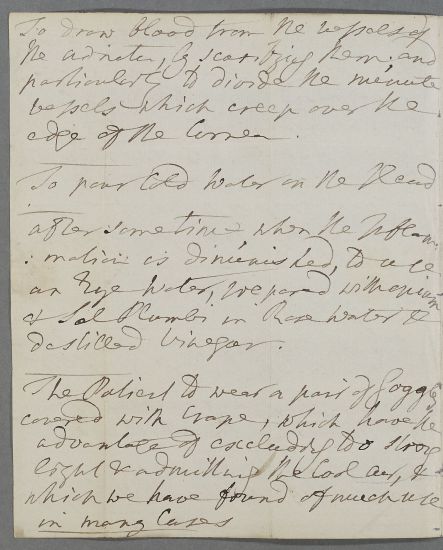 To draw blood from the vessels of
the adnata, by scarifying them. and
particularly to divide the minute
vessels which creep over the
edge of the Cornea.
To pour Cold water on the Head
after some time when the Inflam:
:mation is diminished, to use
an Eye Water, prepared with opium
& Sal Plumbi in Rose Water &
destilled Vinegar.
The Patient to wear a pair of Goggles
covered with Crape, which have the
advantage of excluding too strong
light & admitting the Cool air, &
which we have found of much use
in many Cases